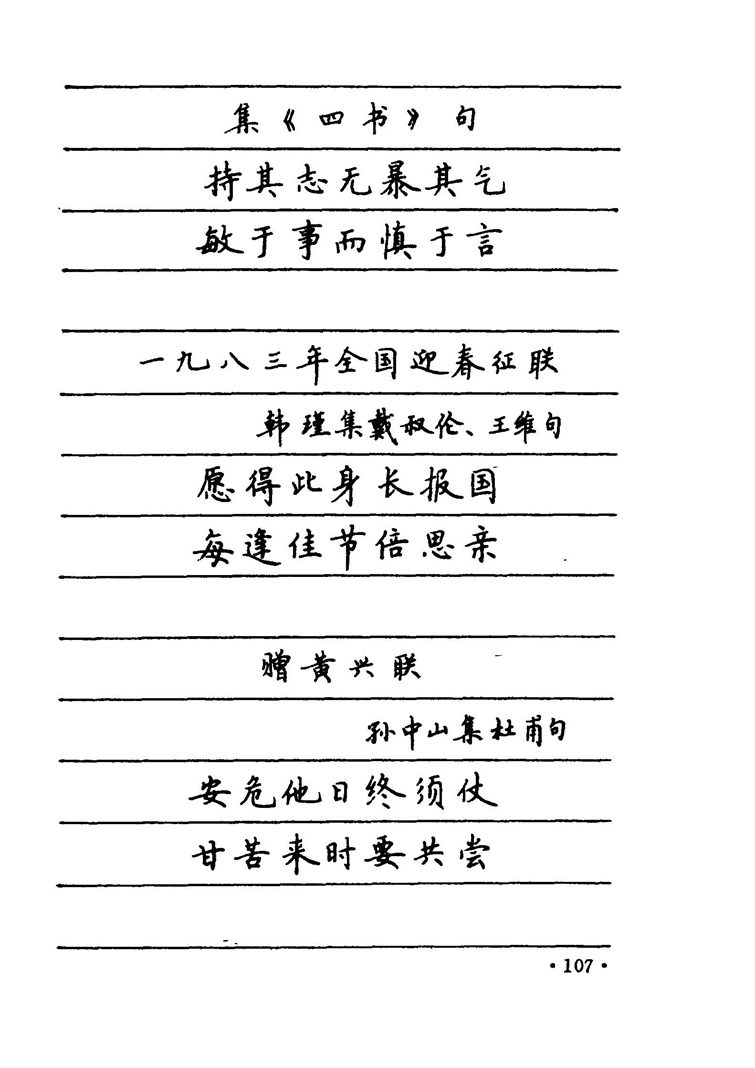 集《四书》句
持其志无暴其气
敏于事而慎于言
一九八三年全国迎春征联
韩瑾集戴叔伦、王维句
愿得此身长报国
每逢佳节倍思亲
赠黄兴联
孙中山集杜甫句
安危他日终须仗
甘苦来时要共尝
·107·